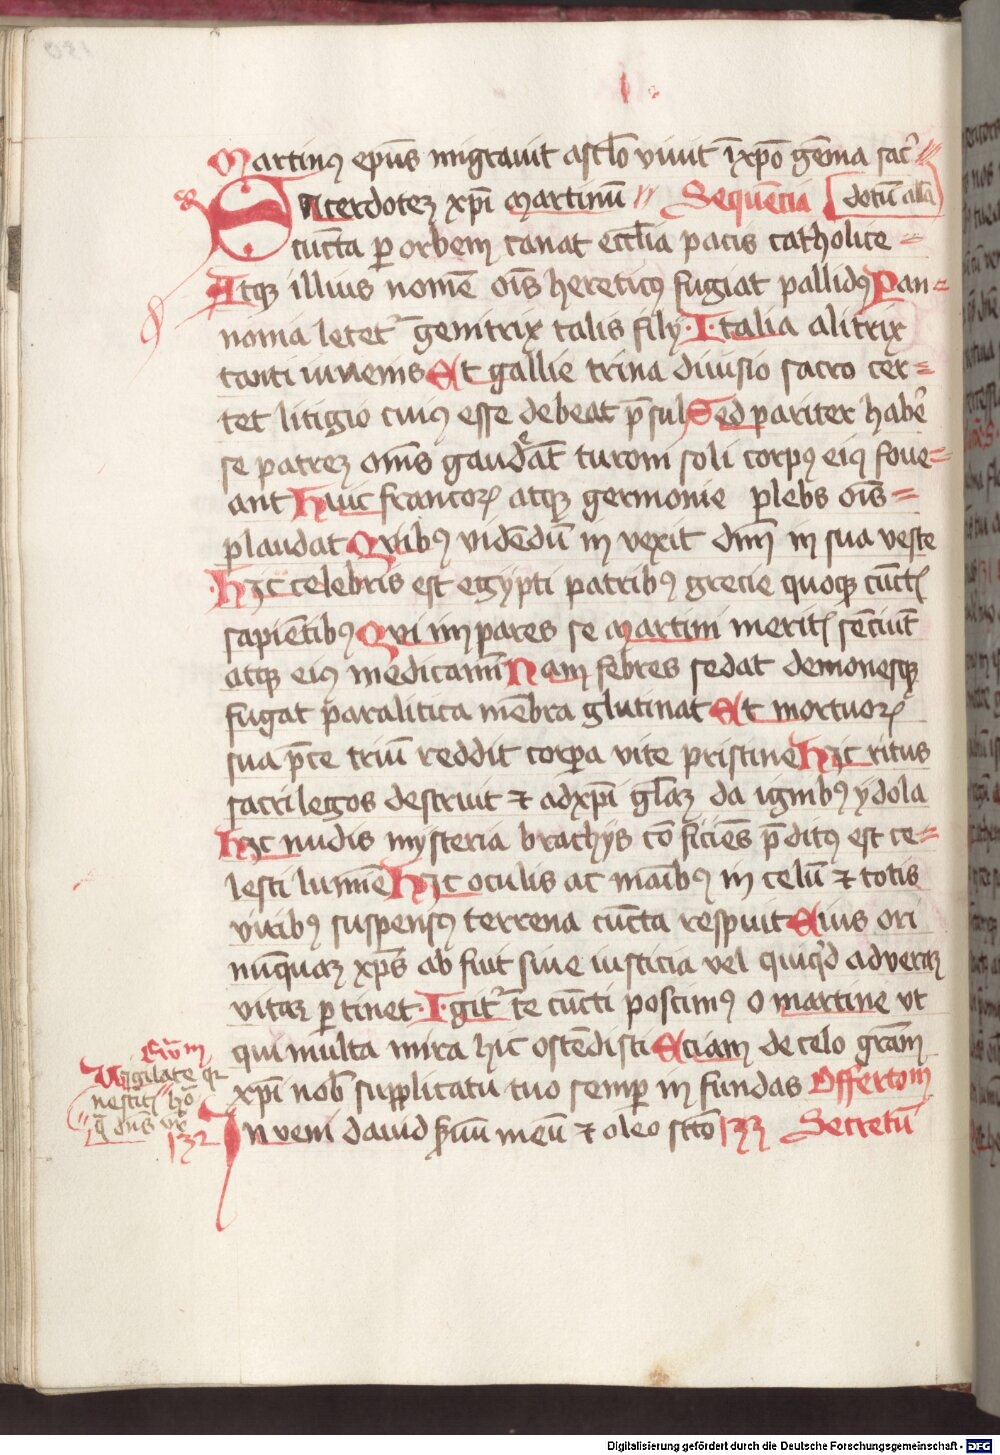 Martinus ep̄us migrauit a sc̄lo viuit ī xp̄o gēma sac̾
Sacerdotem xp̄i martinū Sequēcia dotū all̄a
cūcta ꝑ orbem canat eccl̄ia pacis catholice
Atqꝫ illius nomē oīs hereticꝰ fugiat pallidꝰ Pan-
nonia letet᷑ genitrix talis filij · Italia alitrix
tanti iuuenis Et gallie trina diuisio sacro cer-
tet litigio cuiꝰ esse debeat p̄sul Sed pariter habe᷑
se patreꝫ om̄s gaudeāt turoni soli corpꝰ eiꝰ foue-
ant Huic francoꝝ atqꝫ germanie plebs oīs
plaudat Quibꝰ vidēdū in vexit dn̄m in sua veste
Hic celebris est egypti patribꝰ grecie quoqꝫ cūct̄
sapiētibꝰ Qui impares se martini merit̄ sēciūt
atqꝫ eiꝰ medicamī Nam febres sedat demonesqꝫ
fugat paralitica mēbra glutinat Et mortuoꝝ
sua p̄ce triū reddit corꝑa vite pristine Hic ritus
sacrilegos destruit ⁊ ad xp̄i gl̄aꝫ da ignibꝰ ydola
Hic nudis mysteria brachijs cōficiēs p̄ditꝰ est ce-
lesti lumīe Hic oculis ac manibꝰ in celū ⁊ totis
viribꝰ suspensꝰ terrena cūcta respuit Eius ori
nūquaꝫ xp̄s ab fuit siue iusticia vel quicq̾d ad veraꝫ
vitaꝫ ꝑtinet · Igit᷑ te cūcti poscimꝰ o martine vt
qui multa mira hic ostēdisti Eciam de celo grām
xp̄i nob̄ supplicatu tuo semꝑ in fundas Offertoriū
Inveni dauid ẜuū meū ⁊ oleo sctō 133 Secretū
Ewm
Vigilate qꝛ
nescit̄ horā
q̄ dn̄s vr̄
132